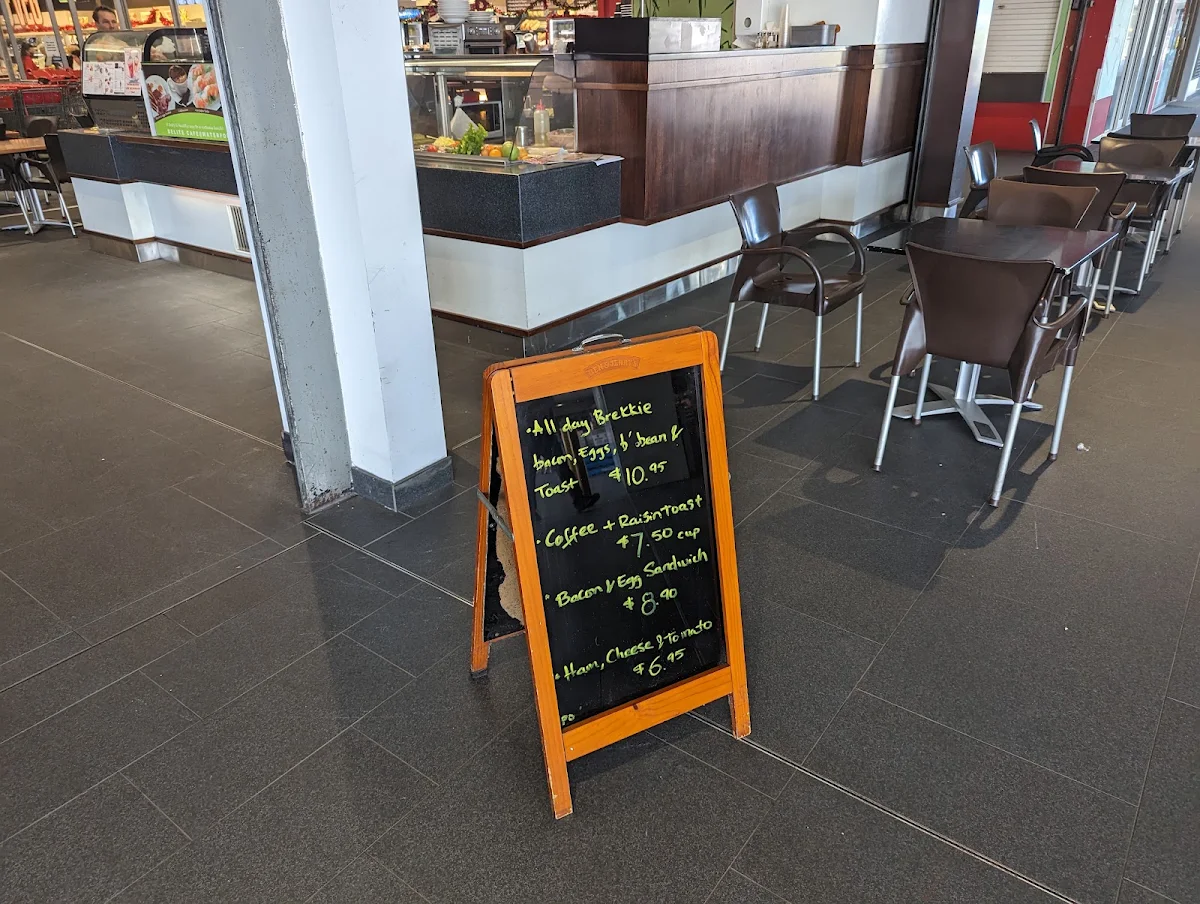 •All day Brekkie
bacon, Eggs, b'bean &
Toast $10.95
•Coffee + Raisin toast
$7.50 cup
•Bacon & Egg Sandwich
$8.90
•Ham, Cheese & Tomato
$6.95